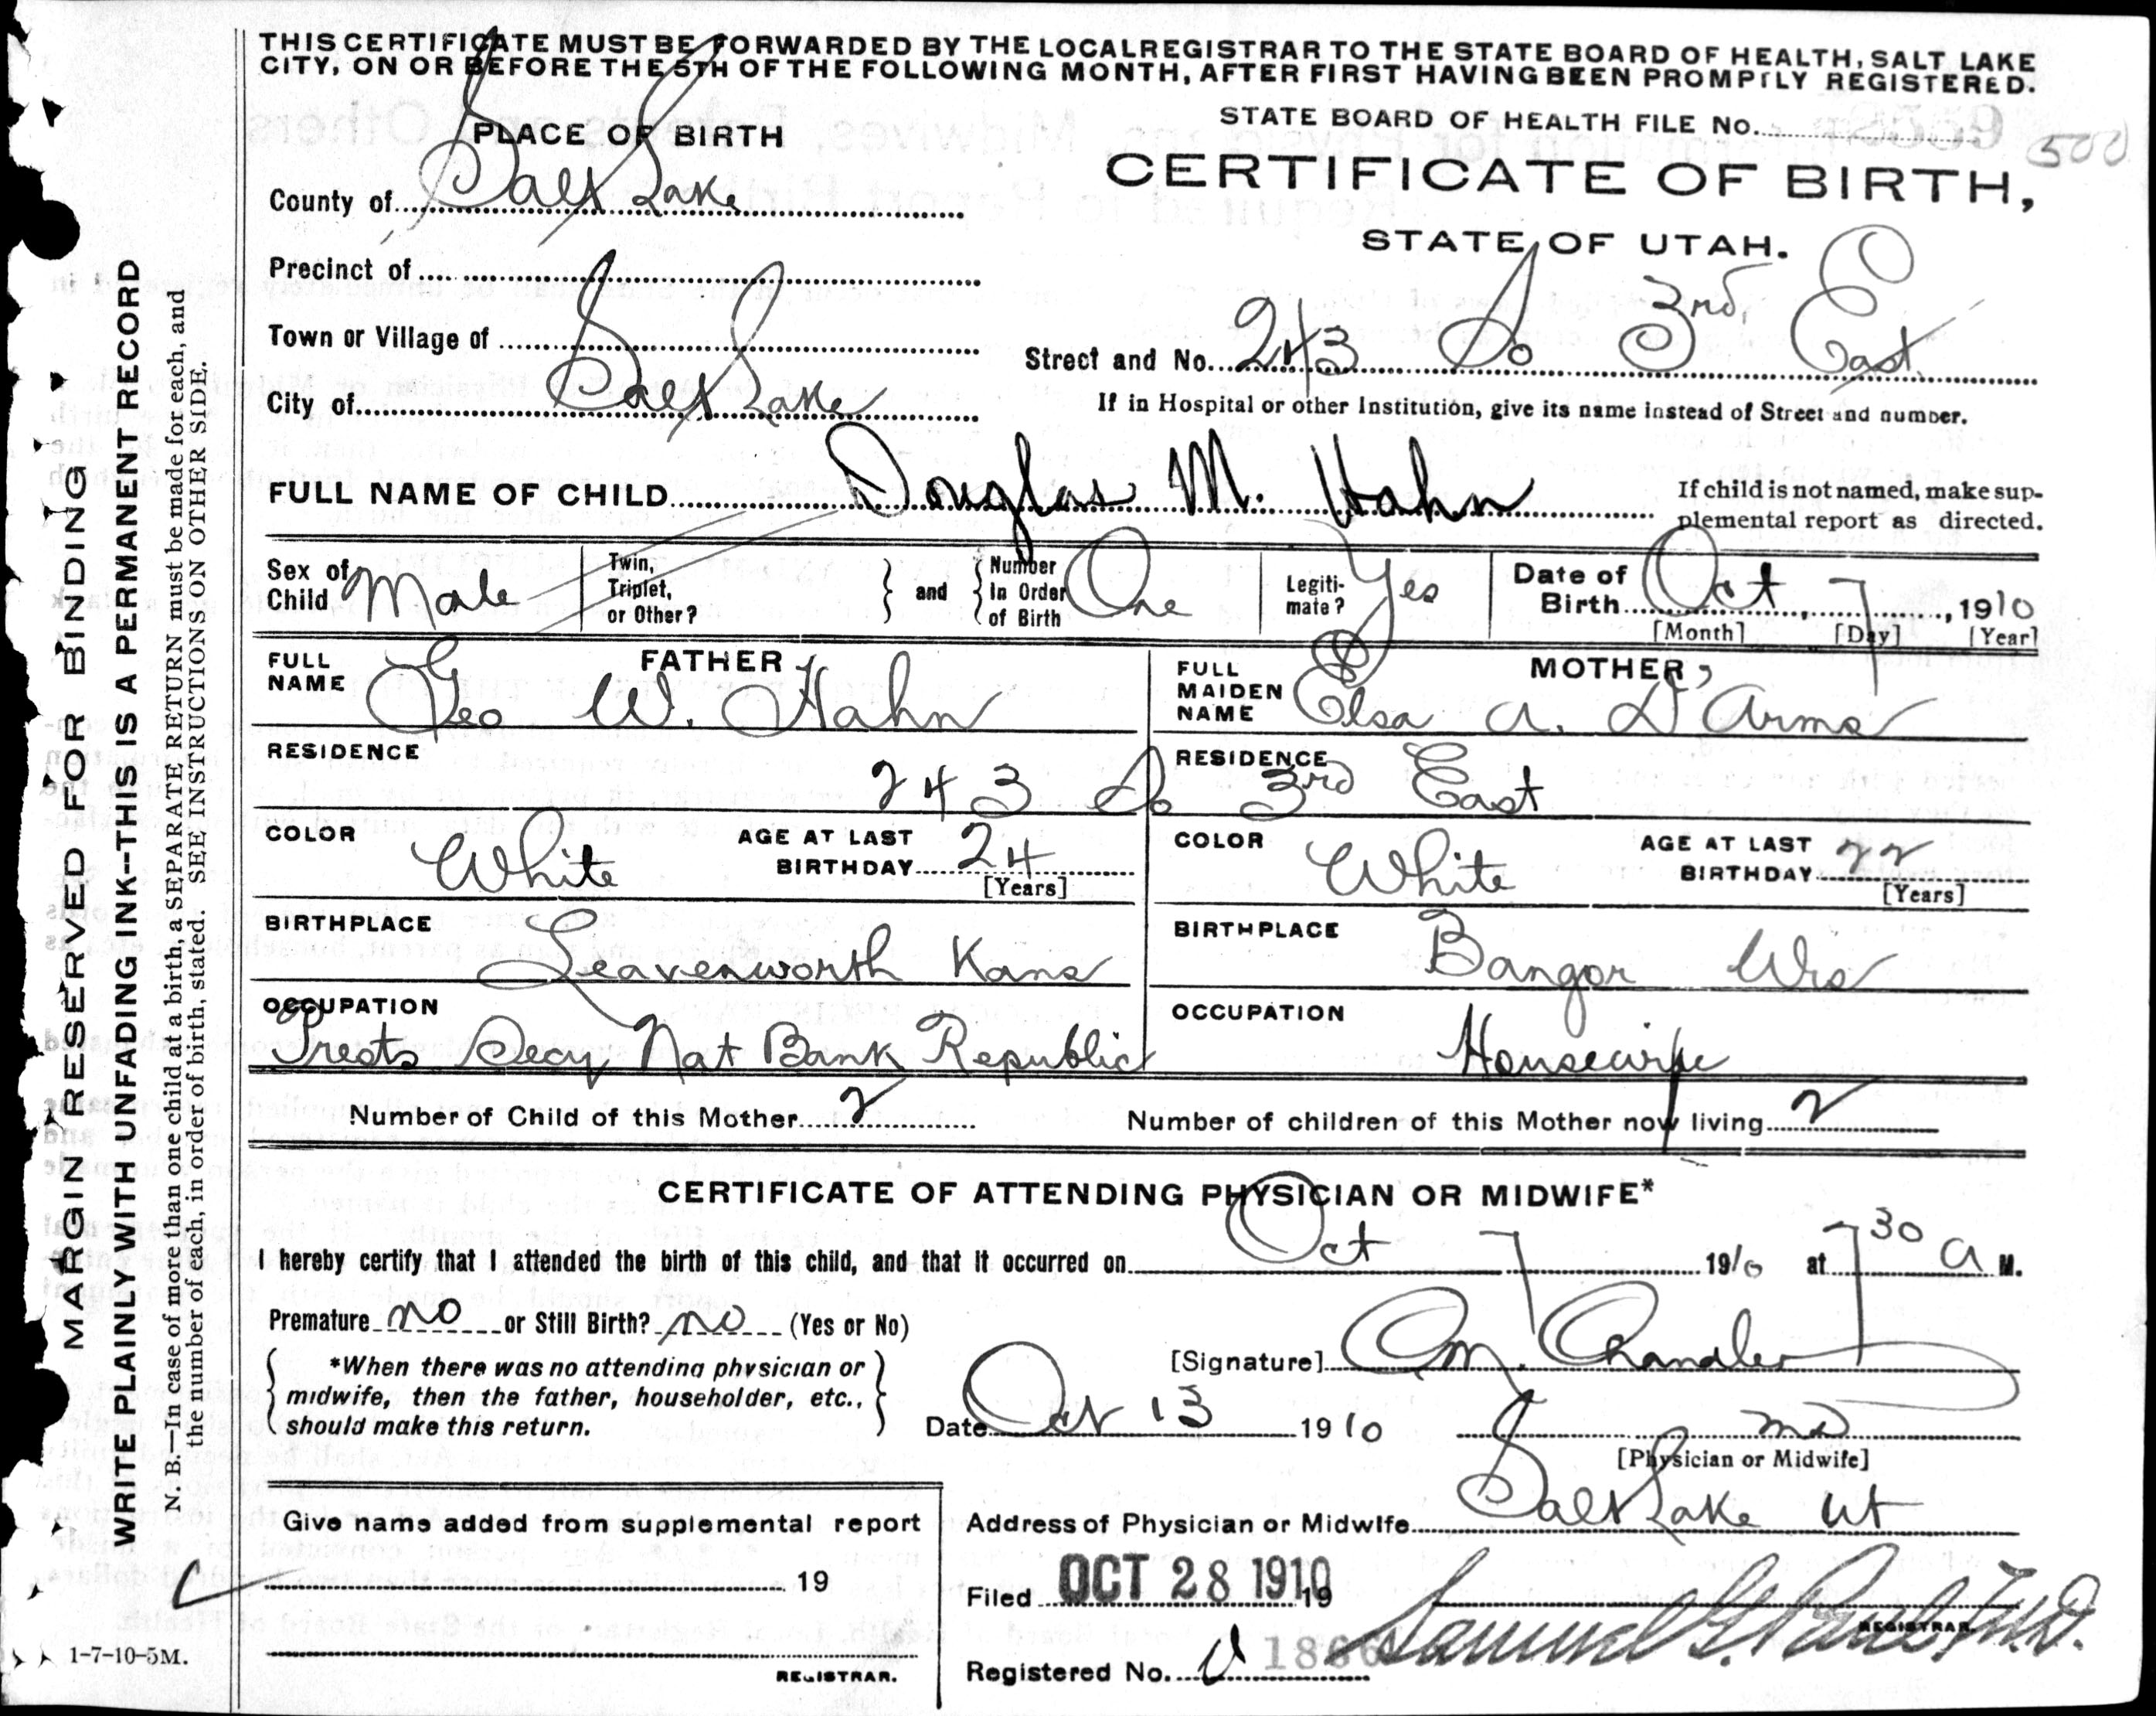 THIS CERTIFICATE MUST BE FORWARDED BY THE LOCAL REGISTRAR TO THE STATE BOARD OF HEALTH, SALT LAKE
CITY, ON OR BEFORE THE 5TH OF THE FOLLOWING MONTH, AFTER FIRST HAVING BEEN PROMPTLY REGISTERED.
STATE BOARD OF HEALTH FILE No. 500
PLACE OF BIRTH
CERTIFICATE OF BIRTH,
STATE OF UTAH.
County of Salt Lake
Precinct of
Town or Village of
Street and No. 243 So 3rd East
City of Salt Lake
If in Hospital or other Institution, give its name instead of Street and number.
FULL NAME OF CHILD Douglas M. Hahn
If child is not named, make sup-
plemental report as directed.
Sex of Child Male
Twin, Triplet, or Other?
and
Number In Order of Birth One
Legiti-mate? Yes
Date of Birth Oct 7, 1910
[Month] [Day] [Year]
FATHER
FULL NAME Geo W. Hahn
MOTHER
FULL MAIDEN NAME Elsa A. D'Arms
RESIDENCE
RESIDENCE
243 So 3rd East
COLOR White
AGE AT LAST BIRTHDAY 24
[Years]
COLOR White
AGE AT LAST BIRTHDAY 22
[Years]
BIRTHPLACE
Leavenworth Kans
BIRTHPLACE
Bangor Wis
OCCUPATION
Secy Nat Bank Republic
OCCUPATION
Housewife
Number of Child of this Mother 2
Number of children of this Mother now living 2
CERTIFICATE OF ATTENDING PHYSICIAN OR MIDWIFE*
I hereby certify that I attended the birth of this child, and that it occurred on Oct 7 1910 at 7 30 A M.
Premature no or Still Birth? no (Yes or No)
*When there was no attending physician or
midwife, then the father, householder, etc.,
should make this return.
[Signature] Chandler
Date Oct 13 1910
MD
[Physician or Midwife]
Give name added from supplemental report
Address of Physician or Midwife Salt Lake Ut
19
Filed OCT 28 1910 19
REGISTRAR.
REGISTRAR.
Registered No.
Samuel G. Paul M.D.
1-7-10-5M.
MARGIN RESERVED FOR BINDING
WRITE PLAINLY WITH UNFADING INK--THIS IS A PERMANENT RECORD
N. B.—In case of more than one child at a birth, a SEPARATE RETURN must be made for each, and
the number of each, in order of birth, stated. SEE INSTRUCTIONS ON OTHER SIDE.